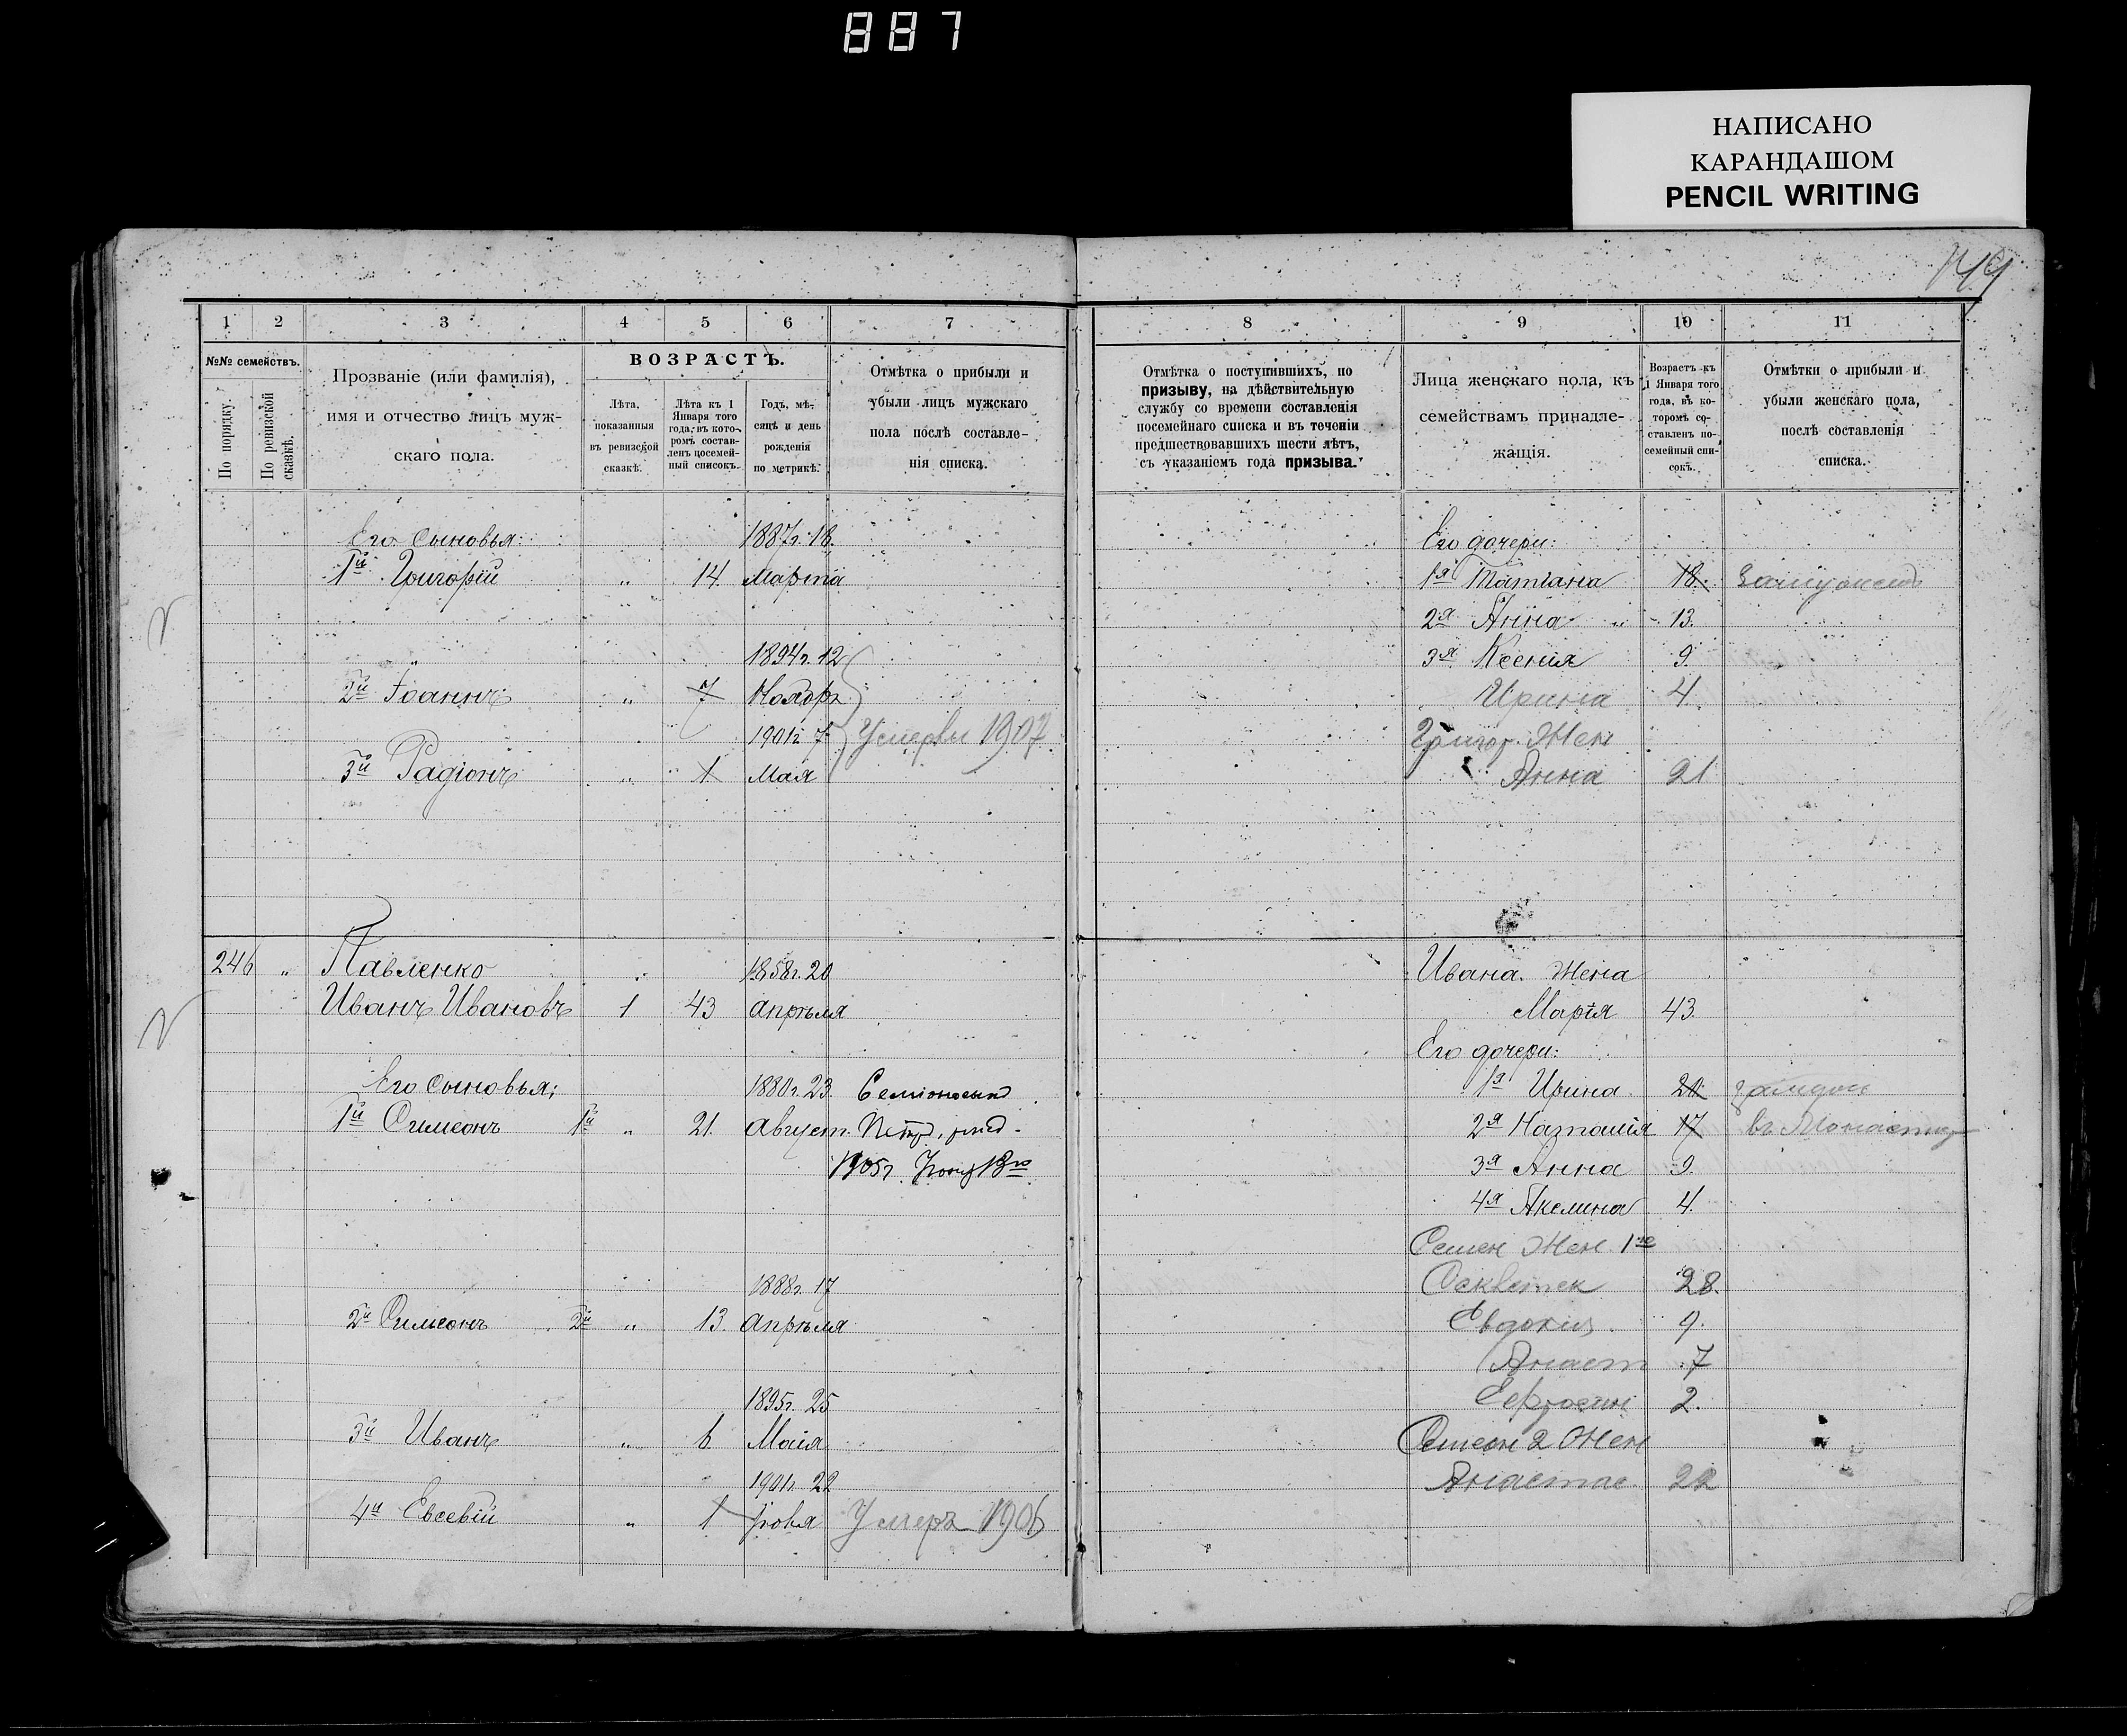 887
НАПИСАНО
КАРАНДАШОМ
PENCIL WRITING
149
1 2 3 4 5 6 7
№№ семействъ.
По порядку.
По ревизской сказкѣ.
Прозваніе (или фамилія),
имя и отчество лицъ муж-
скаго пола.
ВОЗРАСТЪ.
Лѣта,
показанныя
въ ревизской
сказкѣ.
Лѣта къ 1
Января того
года, въ кото-
ромъ состав-
ленъ посемей-
ный списокъ.
Годъ, мѣ-
сяцъ и день
рожденія
по метрикѣ.
Отмѣтка о прибыли и
убыли лицъ мужскаго
пола послѣ составле-
нія списка.
Его сыновья: 1887г. 18.
1й Григорій „ 14. Марта
1894г. 12
2й Іоаннъ „ 7 Ноябр
1901г. 7 Умерли 1907
3й Радіонъ „ 1 Мая
246 „ Павленко „ 1858г. 20
Иванъ Ивановъ 1 43 апрѣля
Его сыновья: 1880г. 23.
1й Симеонъ 1й „ 21. Август.
1905г.
1888г. 17
2й Симеонъ 2й „ 13. апрѣля
1895г. 25
3й Иванъ „ 6 Мая
1901г. 22
4й Евсевій „ 1 Умеръ 1906
8 9 10 11
Отмѣтка о поступившихъ, по
призыву, на дѣйствительную
службу со времени составленія
посемейнаго списка и въ теченіи
предшествовавшихъ шести лѣтъ,
съ указаніемъ года призыва.
Лица женскаго пола, къ
семействамъ принадле-
жащія.
Возрастъ къ
1 Января того
года, въ ко-
торомъ со-
ставленъ по-
семейный спи-
сокъ.
Отмѣтки о прибыли и
убыли женскаго пола,
послѣ составленія
списка.
Его дочери:
1я Татіана 18. Замужемъ
2я Анна „ 13.
3я Ксенія 9.
Ирина 4.
Григор. Жен
Анна 21
Ивана Жена
Марія 43.
Его дочери:
1я Ирина 20
2я Наталія 17 въ Монастир
3я Анна 9.
4я Акелина 4.
Семен Жен 1го
28.
Евдокия 9.
Анаст 7
2.
Семеон 2 Жен
Анастас. 22